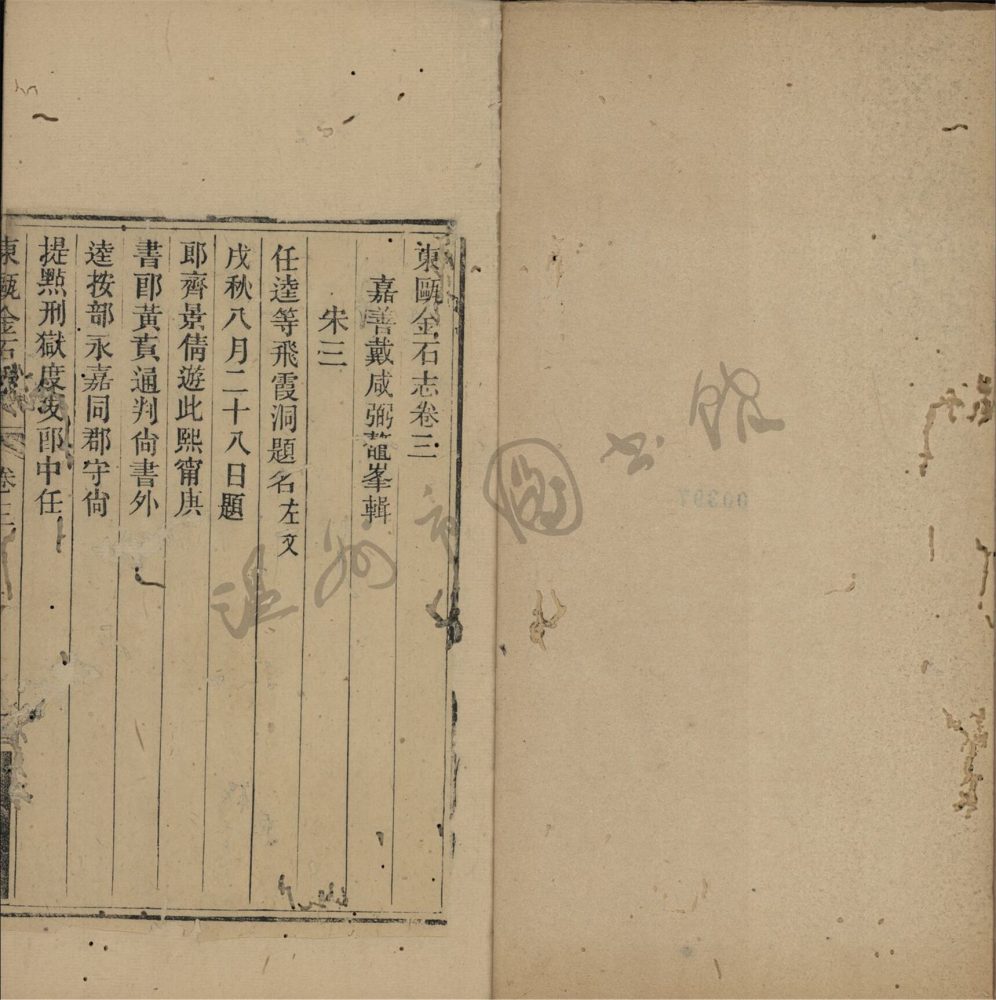 東甌金石志卷三
嘉善戴咸弼鼇峯輯
宋三
任逵等飛霞洞題名左文
戌秋八月二十八日題
郎齊景倩遊此熙甯庚
書郎黃賁通判尙書外
逵按部永嘉同郡守尙
提點刑獄度支郎中任
東甌金石志 卷三
温州市圖书館
00397